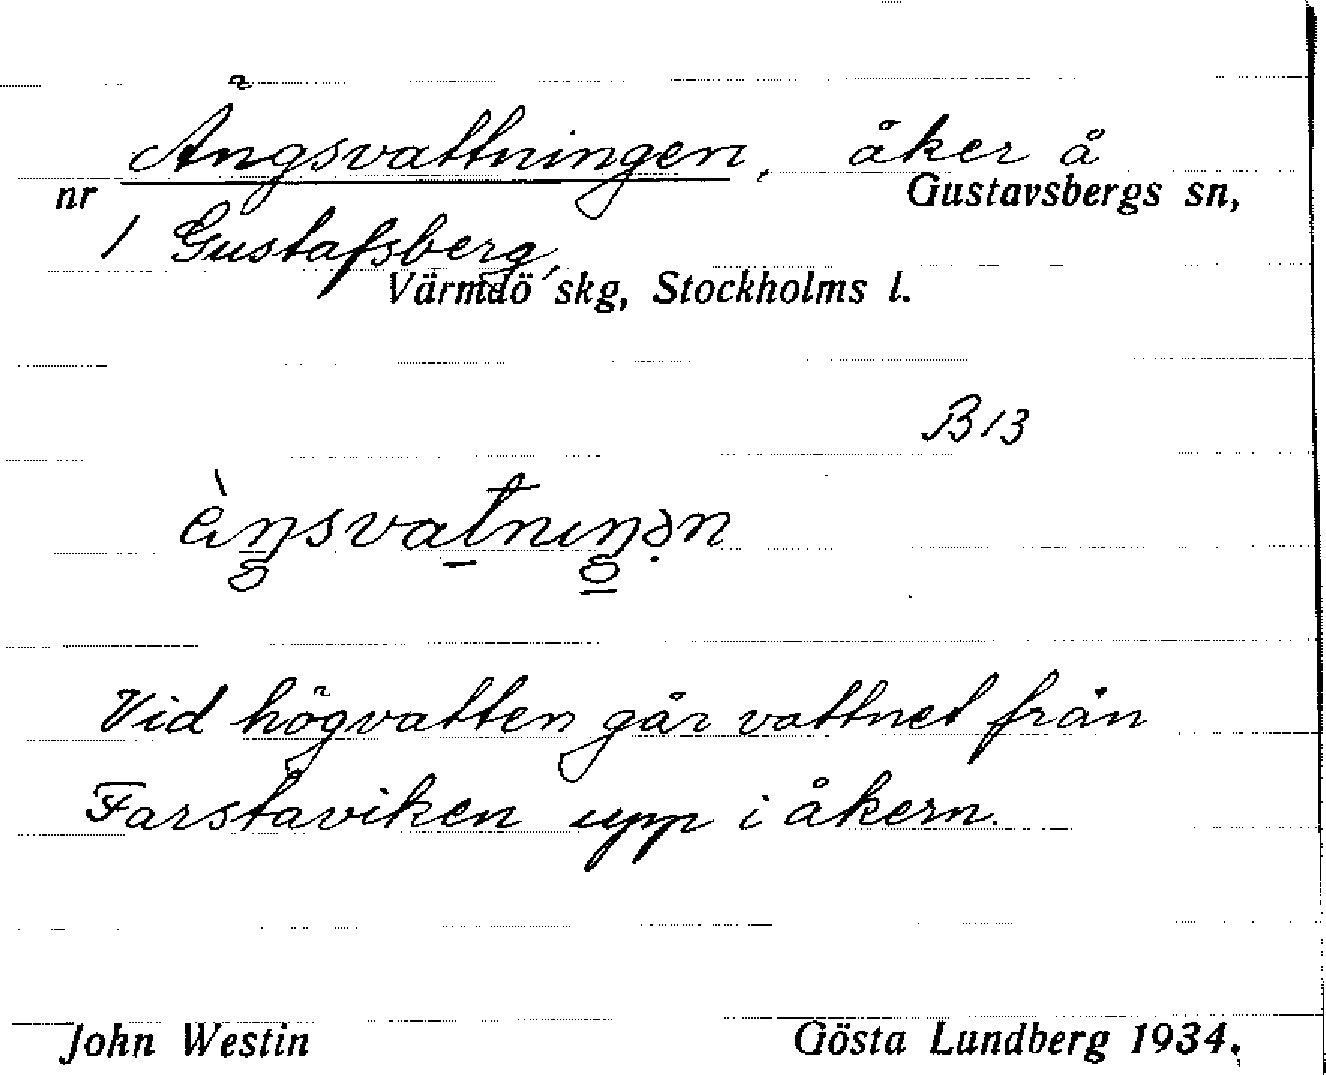 Ängsvattningen, åker å
nr Gustavsbergs sn,
1 Gustafsberg,
Värmdö skg, Stockholms l.
B13
èŋsvatnıŋən
Vid högvatten går vattnet från
Farstaviken upp i åkern.
John Westin Gösta Lundberg 1934.